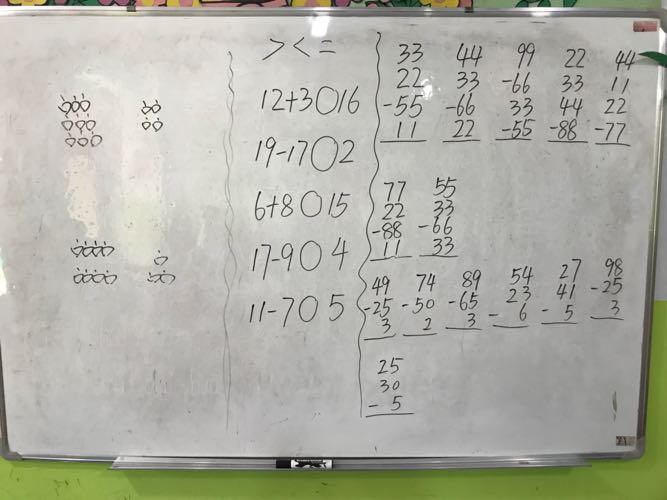 > < =
12+3○16
19-17○2
6+8○15
17-9○4
11-7○5
33 44 99 22 44
22 33 -66 33 11
-55 -66 33 44 22
11 22 -55 -88 -77
77 55
22 33
-88 -66
11 33
49 74 89 54 27 98
-25 -50 -65 23 41 -25
3 2 3 -6 -5 3
25
30
-5